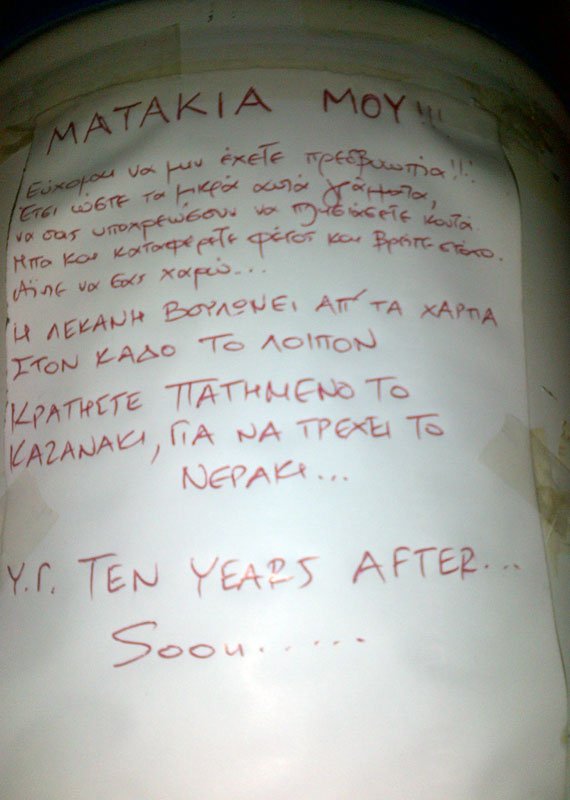 ΜΑΤΑΚΙΑ ΜΟΥ!!!
Εύχομαι να μην έχετε πρεσβυωπία!!!
Έτσι ώστε τα μικρά αυτά γράμματα,
να σας υποχρεώσουν να πλησιάσετε κοντά
Μπα και καταφέρετε φέτος και βρήτε στόχο.
Άϊντε να σας χαρώ...
Η ΛΕΚΑΝΗ ΒΟΥΛΩΝΕΙ ΑΠ' ΤΑ ΧΑΡΤΙΑ
ΣΤΟΝ ΚΑΔΟ ΤΟ ΛΟΙΠΟΝ
ΚΡΑΤΗΣΤΕ ΠΑΤΗΜΕΝΟ ΤΟ
ΚΑΖΑΝΑΚΙ, ΓΙΑ ΝΑ ΤΡΕΧΕΙ ΤΟ
ΝΕΡΑΚΙ...
Υ.Γ. TEN YEARS AFTER...
Soon......